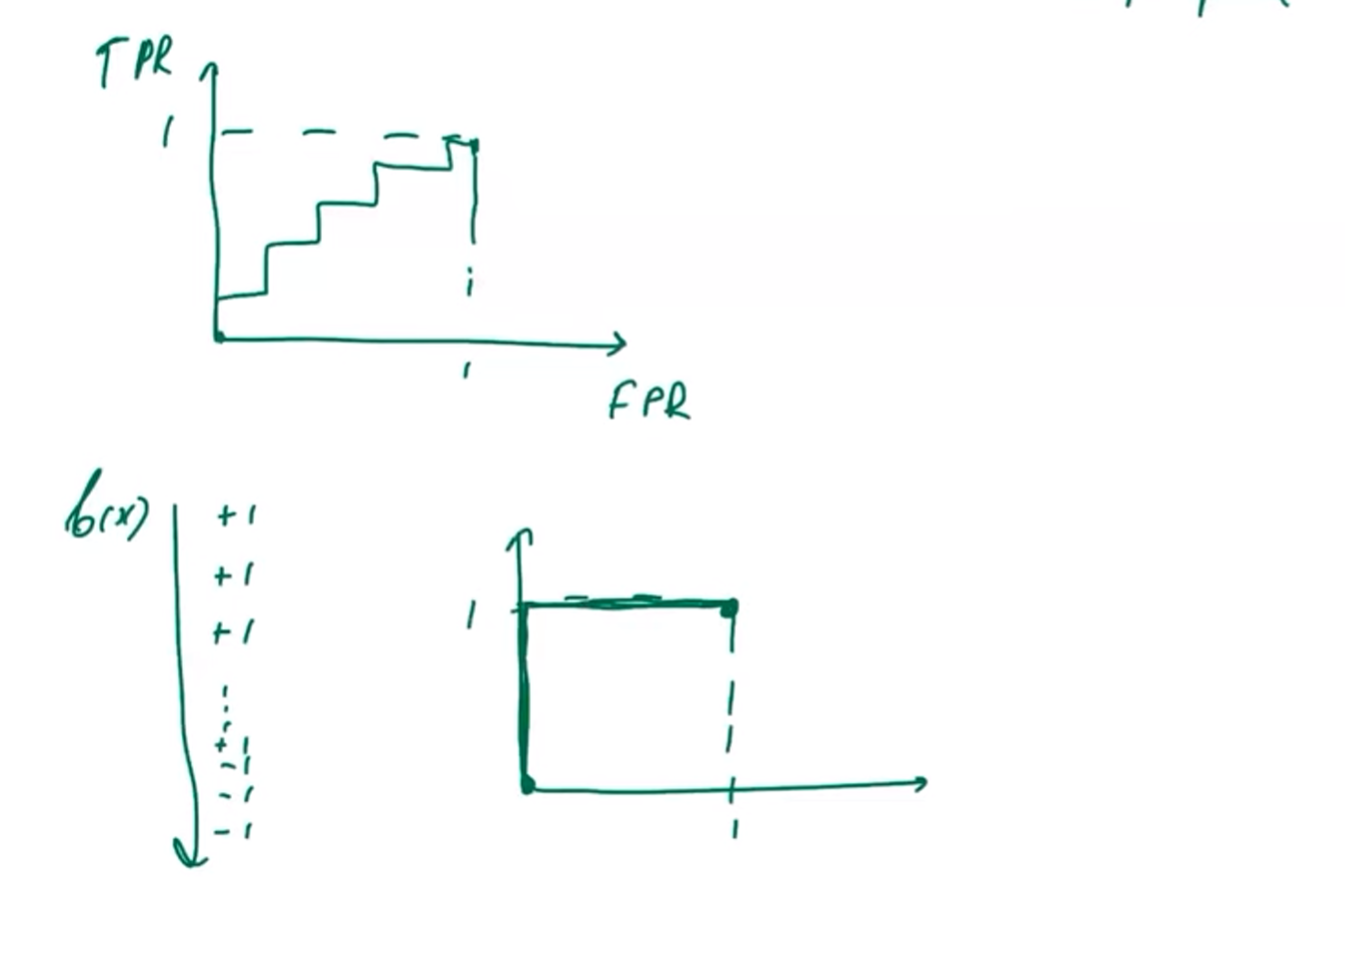 TPR
1
1
FPR
b(x)
+1
+1
+1
⋮
+1
-1
-1
-1
1
1